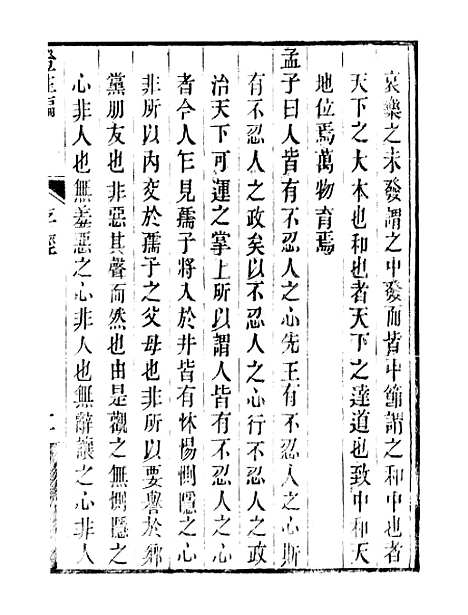 哀樂之未發謂之中發而皆中節謂之和中也者
天下之大本也和也者天下之達道也致中和天
地位焉萬物育焉
孟子曰人皆有不忍人之心先王有不忍人之心斯
有不忍人之政矣以不忍人之心行不忍人之政
治天下可運之掌上所以謂人皆有不忍人之心
者今人乍見孺子將入於井皆有怵惕惻隱之心
非所以內交於孺子之父母也非所以要譽於鄉
黨朋友也非惡其聲而然也由是觀之無惻隱之
心非人也無羞惡之心非人也無辭讓之心非人